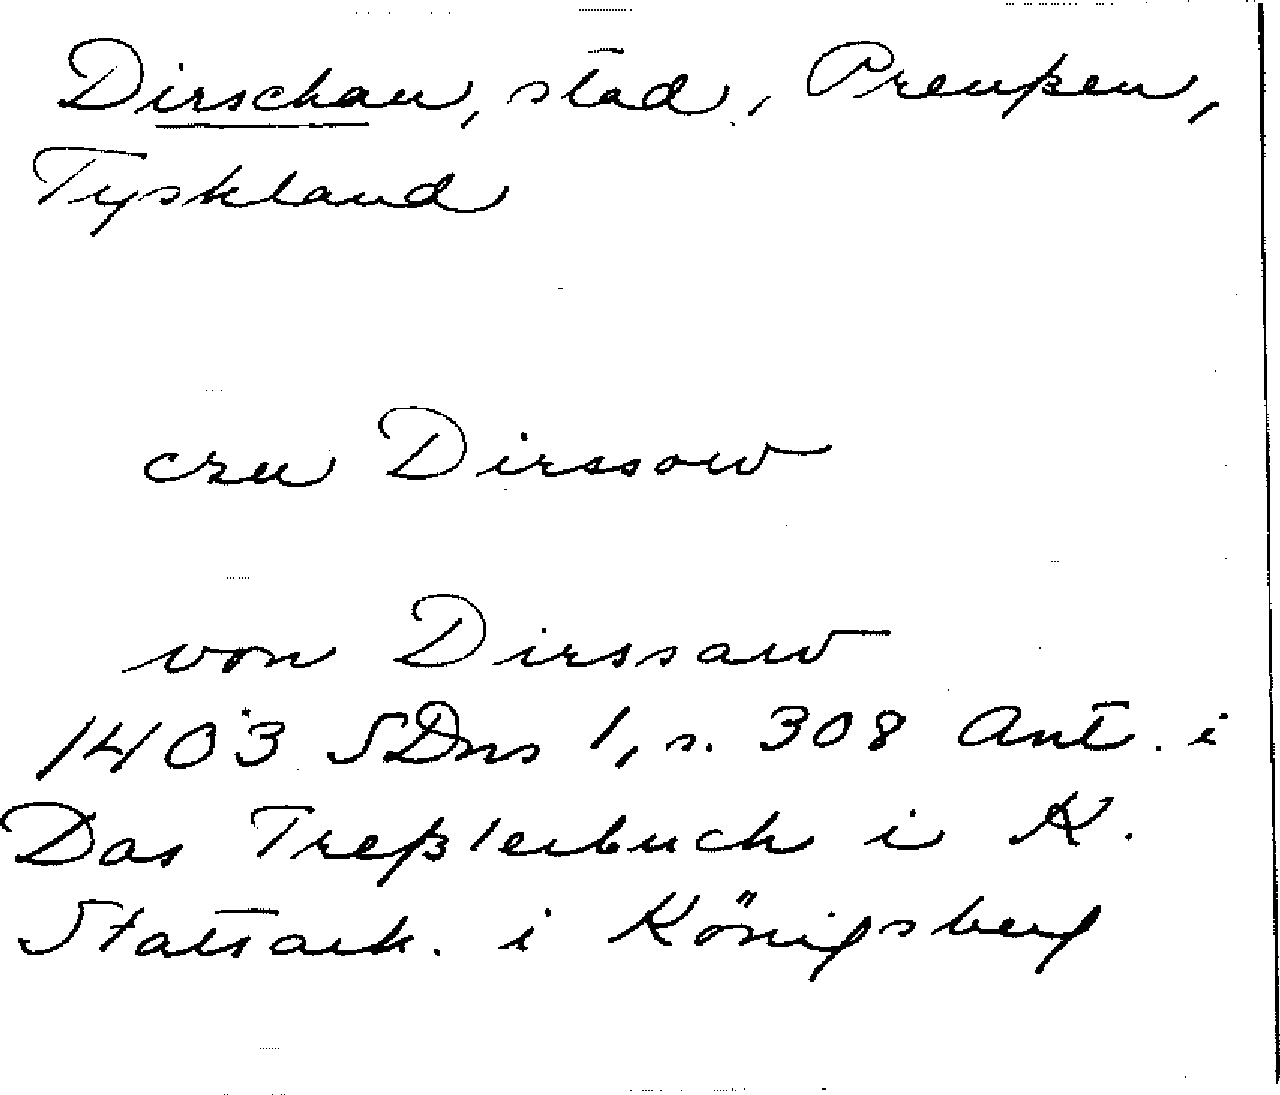 Dirschau, stad, Preußen,
Tyskland
czu Dirssow
von Dirssaw
1403 SDns 1, s. 308 Ant. i
Das Treßlerbuch i K.
Statsark. i Königsberg